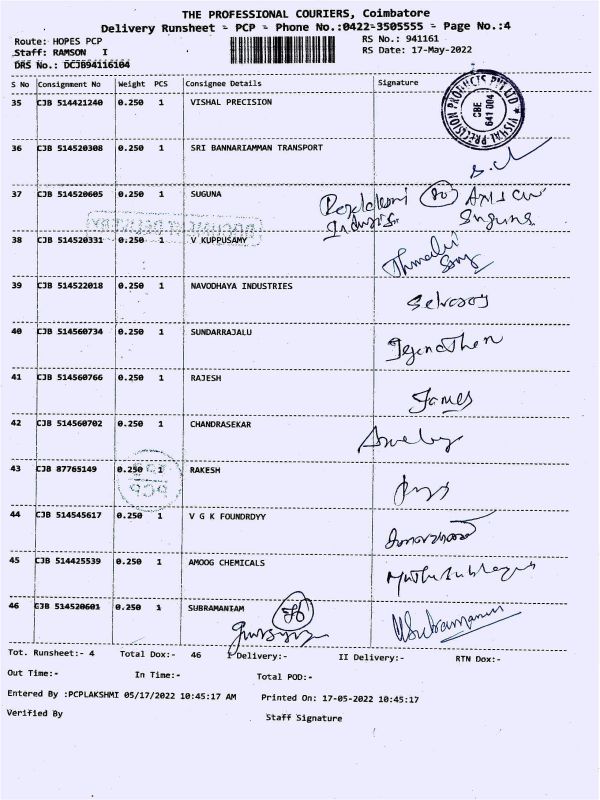 THE PROFESSIONAL COURIERS, Coimbatore
Delivery Runsheet - PCP - Phone No.:0422-3505555 - Page No.:4
Route: HOPES PCP
RS No.: 941161
Staff: RAMSON I
RS Date: 17-May-2022
DRS No.: DCJB94116104
S No Consignment No Weight PCS Consignee Details Signature
35 CJB 514421240 0.250 1 VISHAL PRECISION
VISHAL PRECISION PRODUCTS PVT LTD
CBE
641 004
36 CJB 514520308 0.250 1 SRI BANNARIAMMAN TRANSPORT
37 CJB 514520605 0.250 1 SUGUNA
Suguna
DOCUMENT DELIVERY
38 CJB 514520331 0.250 1 V KUPPUSAMY
39 CJB 514522018 0.250 1 NAVODHAYA INDUSTRIES
40 CJB 514560734 0.250 1 SUNDARRAJALU
41 CJB 514560766 0.250 1 RAJESH
James
42 CJB 514560702 0.250 1 CHANDRASEKAR
43 CJB 87765149 0.250 1 RAKESH
PCP
44 CJB 514545617 0.250 1 V G K FOUNDRDYY
45 CJB 514425539 0.250 1 AMOOG CHEMICALS
46 CJB 514520601 0.250 1 SUBRAMANIAM
Tot. Runsheet:- 4 Total Dox:- 46 I Delivery:- II Delivery:- RTN Dox:-
Out Time:- In Time:- Total POD:-
Entered By :PCPLAKSHMI 05/17/2022 10:45:17 AM Printed On: 17-05-2022 10:45:17
Verified By Staff Signature